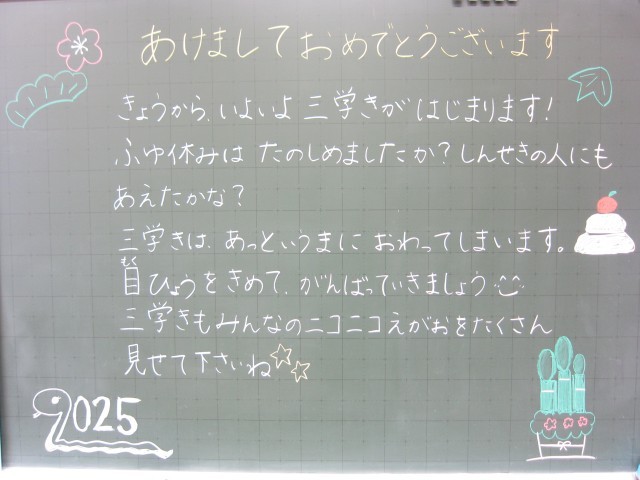 あけましておめでとうございます
きょうから、いよいよ三学きがはじまります!
ふゆ休みはたのしめましたか?しんせきの人にも
あえたかな?
三学きは、あっというまにおわってしまいます。
目もくひょうをきめて、がんばっていきましょう
三学きもみんなのニコニコえがおをたくさん
見せて下さいね
2025